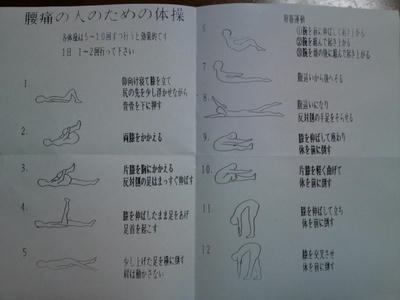 腰痛の人のための体操
各体操は5〜10回ずつ行うと効果的です
1日 1〜2回行って下さい
1.
仰向け寝て膝を立て
尻の先を少し浮かせながら
背骨を下に押す
2.
両膝をかかえる
3.
片膝を胸にかかえる
反対側の足はまっすぐ伸ばす
4.
膝を伸ばしたまま足をあげ
足首を起こす
5
少し上げた足を横に倒す
肩は動かさない
6
腹筋運動
①腕を前に伸ばして起き上がる
②腕を組んで起き上がる
③腕を頭の後に組んで起き上がる
7
腹這いから後へそる
8.
腹這いになり
反対側の手足をそらせる
9.
膝を伸ばして座わり
体を前に倒す
10.
片膝を軽く曲げて
体を前に倒す
11.
膝を伸ばして立ち
体を前に倒す
12
膝を交叉させ
体を前に倒す